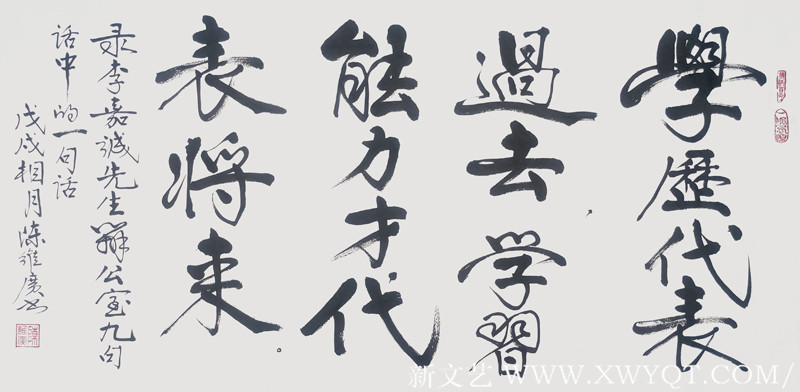 學歷代表
過去，学習
能力才代
表将来。
录李嘉诚先生辦公室九句
话中的一句话
戊戌相月陈维廣书
新文艺 WWW.XWYQT.COM